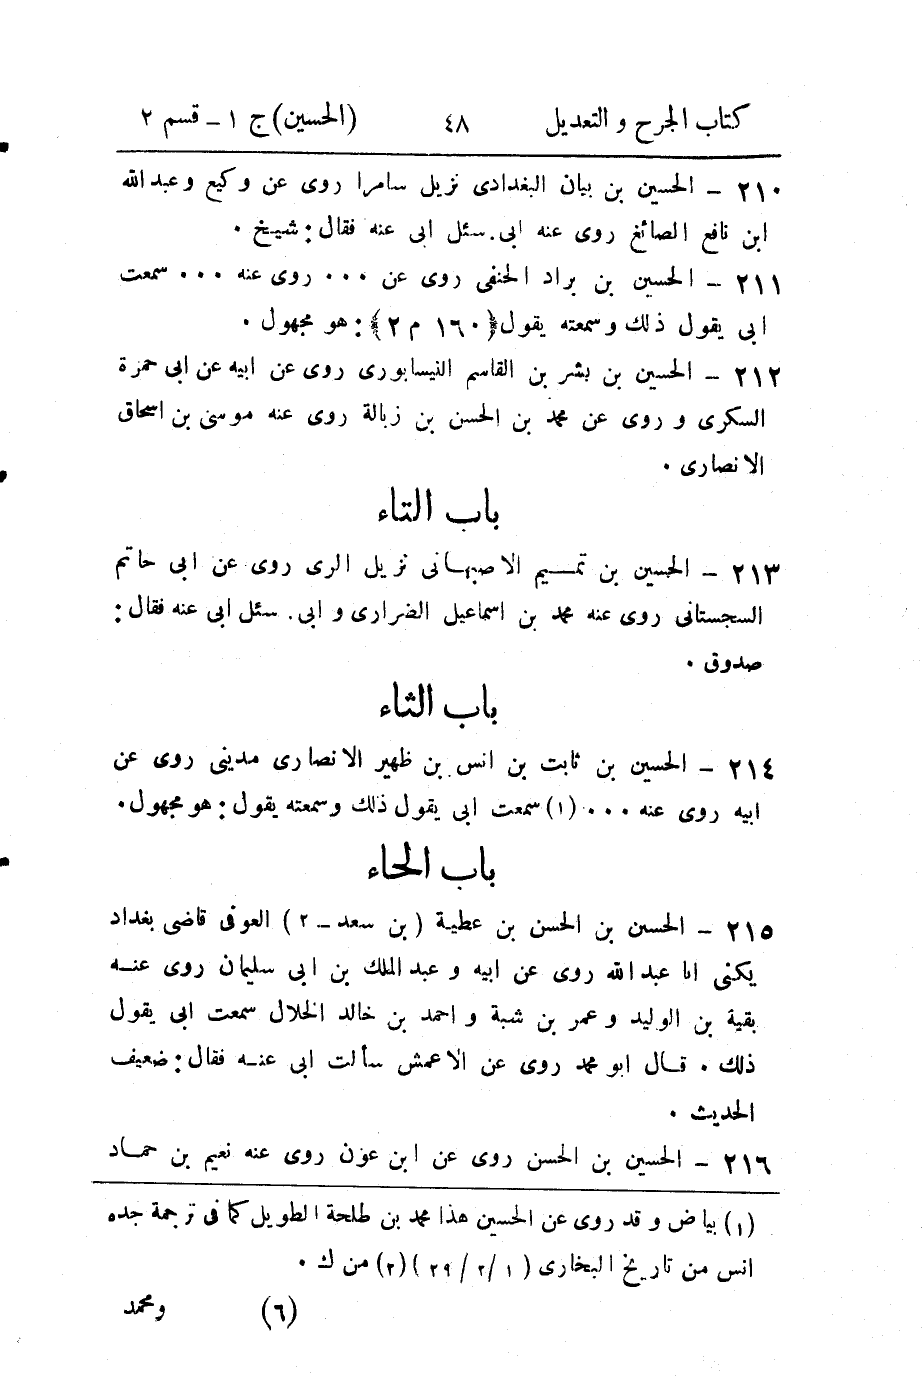 كتاب الجرح و التعديل ٤٨ (الحسين) ج ١ – قسم ٢
٢١٠ – الحسين بن بيان البغدادى نزيل سامرا روى عن وكيع وعبد الله
ابن نافع الصائغ روى عنه ابى. سئل ابى عنه فقال: شيخ ٠
٢١١ – الحسين بن براد الحنفى روى عن ٠٠٠ روى عنه ٠٠٠ سمعت
ابى يقول ذلك وسمعته يقول ﴿١٦٠ م ٢﴾: هو مجهول ٠
٢١٢ – الحسين بن بشر بن القاسم النيسابورى روى عن ابيه عن ابى حمزة
السكرى و روى عن محمد بن الحسن بن زبالة روى عنه موسى بن اسحاق
الانصارى ٠
باب التاء
٢١٣ – الحسين بن تميم الاصبهانى نزيل الرى روى عن ابى حاتم
السجستانى روى عنه محمد بن اسماعيل الضرارى و ابى. سئل ابى عنه فقال:
صدوق ٠
باب الثاء
٢١٤ – الحسين بن ثابت بن انس بن ظهير الانصارى مدينى روى عن
ابيه روى عنه ٠٠٠ (١) سمعت ابى يقول ذلك وسمعته يقول: هو مجهول٠
باب الحاء
٢١٥ – الحسين بن الحسن بن عطية (بن سعد – ٢) العوفى قاضى بغداد
يكنى ابا عبد الله روى عن ابيه و عبد الملك بن ابى سليمان روى عنه
بقية بن الوليد و عمر بن شبة و احمد بن خالد الخلال سمعت ابى يقول
ذلك ٠ قال ابو محمد روى عن الاعمش سألت ابى عنه فقال: ضعيف
الحديث ٠
٢١٦ – الحسين بن الحسن روى عن ابن عون روى عنه نعيم بن حماد
(١) بياض و قد روى عن الحسين هذا محمد بن طلحة الطويل كما فى ترجمة جده
انس من تاريخ البخارى (١/ ٢/ ٢٩) (٢) من ك ٠
(٦) ومحمد